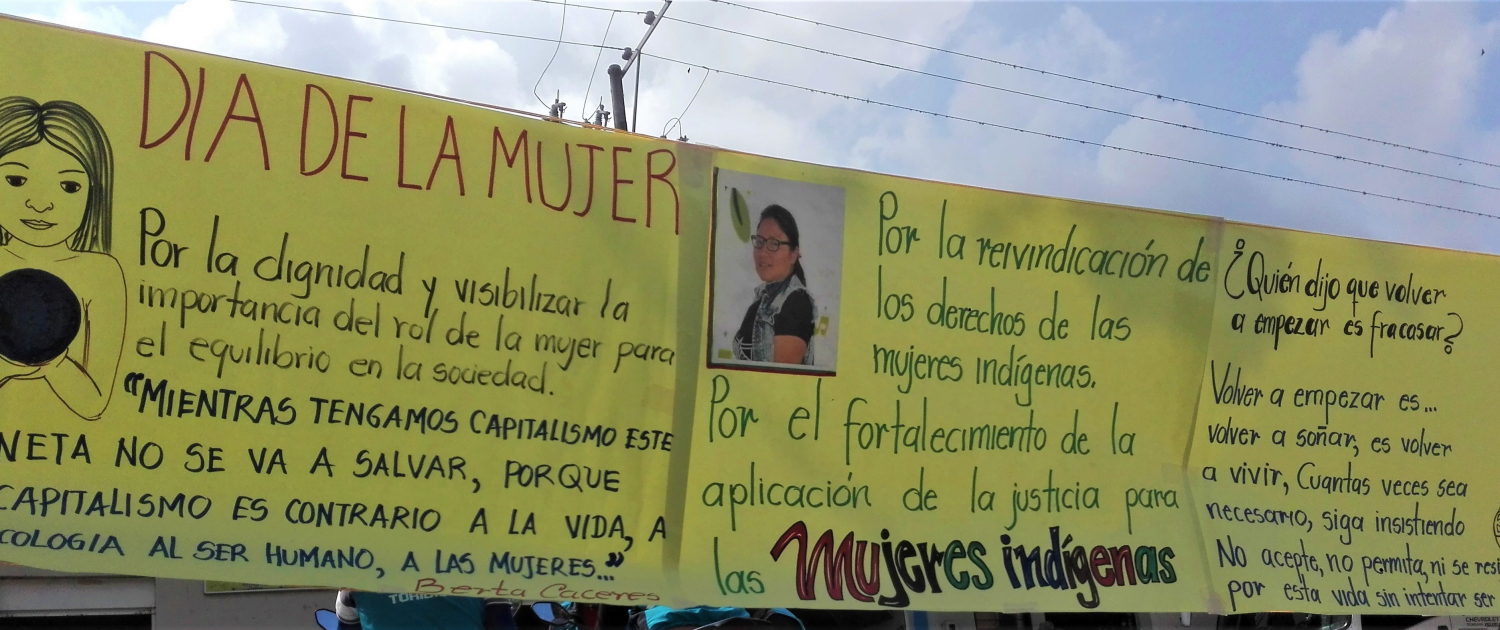 DIA DE LA MUJER
Por la dignidad y visibilizar la
importancia del rol de la mujer para
el equilibrio en la sociedad.
"MIENTRAS TENGAMOS CAPITALISMO ESTE
NETA NO SE VA A SALVAR, PORQUE
CAPITALISMO ES CONTRARIO A LA VIDA, A
COLOGIA AL SER HUMANO, A LAS MUJERES..."
Berta Caceres
Por la reivindicación de
los derechos de las
mujeres indígenas.
Por el fortalecimiento de la
aplicación de la justicia para
las Mujeres indígenas
¿Quién dijo que volver
a empezar es fracasar?
Volver a empezar es...
volver a soñar, es volver
a vivir, Cuantas veces sea
necesario, siga insistiendo
No acepte, no permita, ni se resi
por esta vida sin intentar ser
CHEVROLET